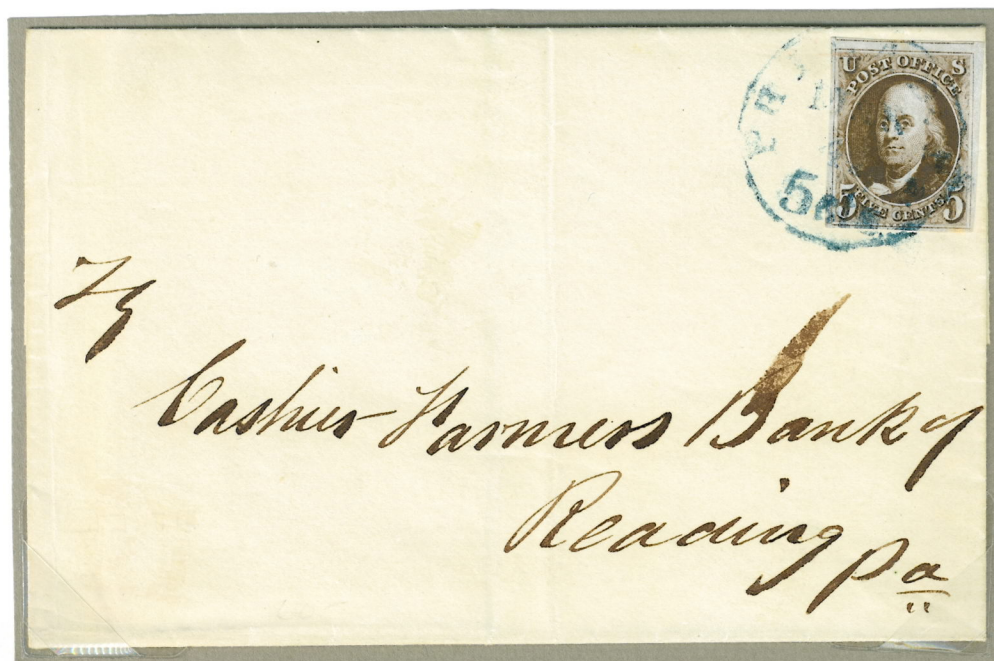 U S
POST OFFICE
5 FIVE CENTS 5
5cts
Cashier Farmers Bank of
Reading
Pa